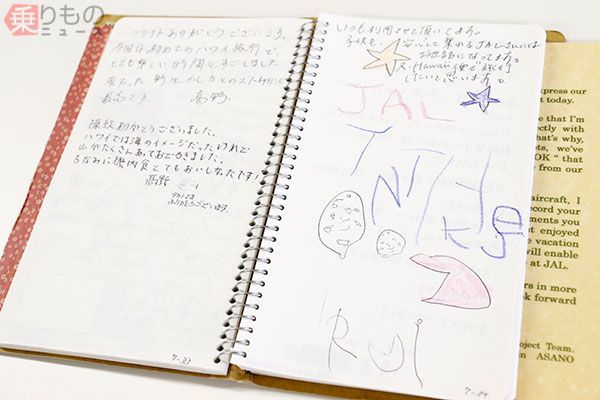 乗りもの
ニュース
フライトありがとうございます。
今回初めてのハワイ旅行で、
とても楽しい時間を過ごしました
最高です。
高野
操縦ありがとうございました。
ハワイでは海のイメージだったけれど
山がたくさんあっておどろきました。
ちなみに機内食とてもおいしかったです!
高野
ありがとうございます。
7-23
いつも利用させて頂いてます。
子供も、安心して乗れるJALさんには
お世話になってます。
又、Hawaii便で旅行
したいと思います。
JAL
RUi
7-24
xpress our
t today.
e that I'm
ectly with
hat's why,
ts, we've
OK " that
from our
aircraft, I
ecord your
ments you
t enjoyed
e vacation
will enable
e at JAL.
ers in more
ok forward
oject Team.
in ASANO